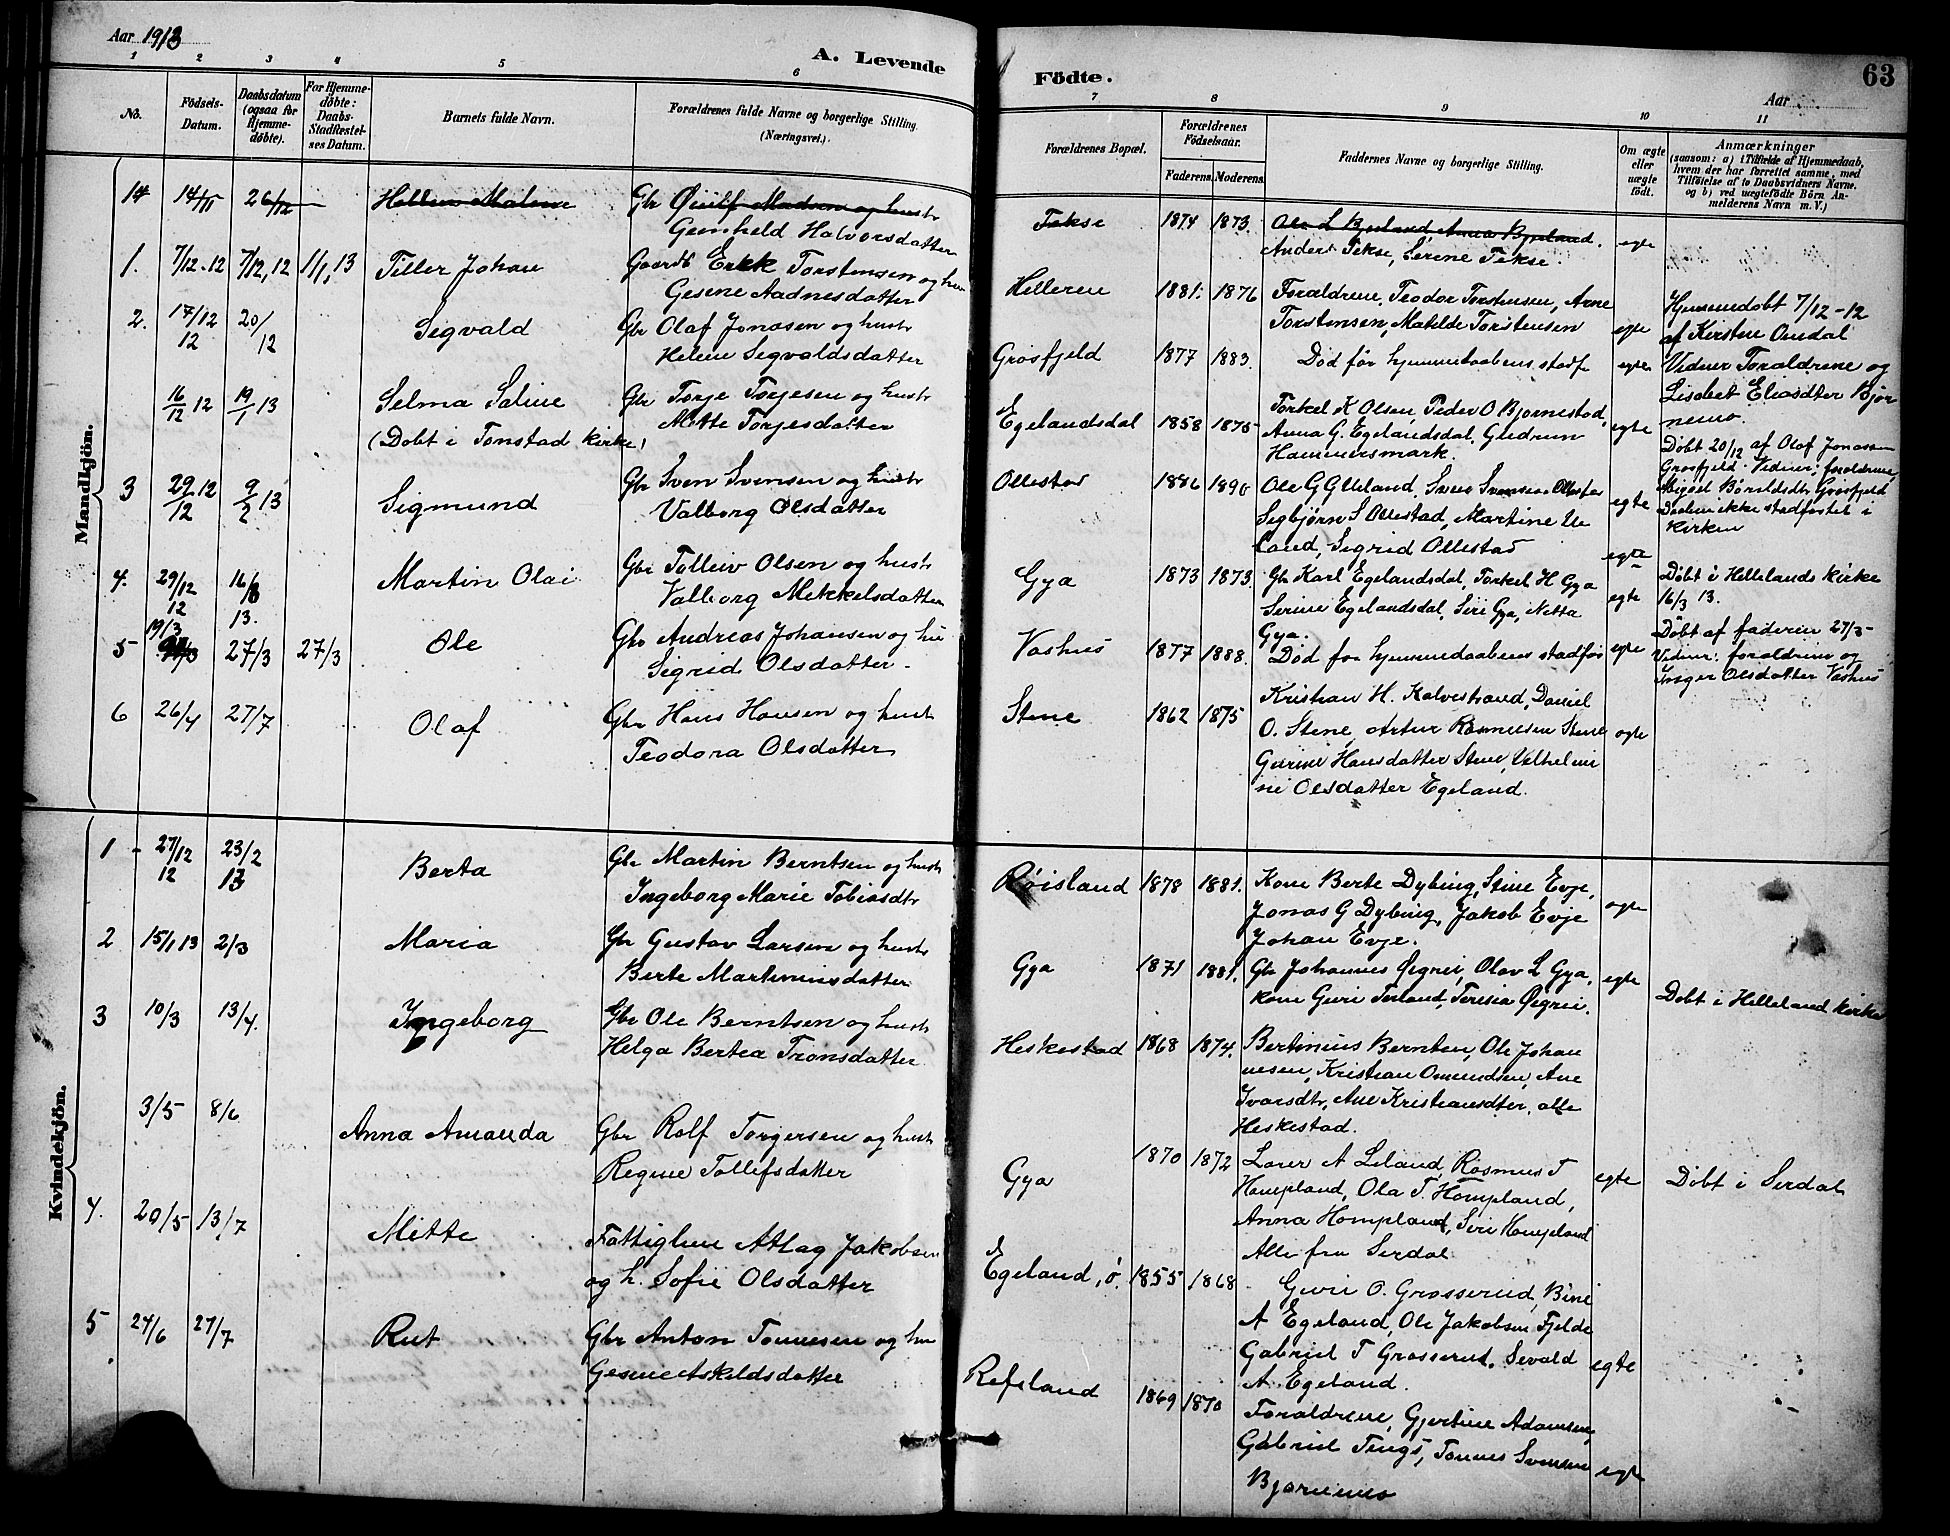 Aar 1913
A. Levende
Födte.
63
Aar
1 2 3 4 5 6 7 8 9 10 11
No.
Födsels-Datum.
Daabsdatum (ogsaa for Hjemmedøbte).
For Hjemmedøbte: Daabs-Stadfæstelses Datum.
Barnets fulde Navn.
Forældrenes fulde Navne og borgerlige Stilling.
(Næringsvei.)
Forældrenes Bopæl.
Forældrenes Födselsaar.
Faderens. Moderens.
Faddernes Navne og borgerlige Stilling.
Om ægte eller uægte födt.
Anmærkninger
(saasom: a) i Tilfælde af Hjemmedaab, hvem der har forrettet samme, med Tilföielse af to Daabsvidners Navne, og b) ved uægtefödte Börn Anmelderens Navn m. V.)
Mandkjön.
14 14/11 26/12 Helline Malene Gbr Øiulf Madsen og hustr
Gunheld Halvorsdatter
Tekse 1874 1873. Ole L Bjerland, Anna Bjerland.
Anders Tekse, Serine Tekse. egte
1. 7/12.12 7/12,12 11/1,13 Tiller Johan Gaardb Erik Torstensen og hu
Gesine Aadnesdatter
Helleren 1881. 1876 Foraldrene, Teodor Torstensen, Arne
Torstensen, Matilde Torstensen egte
Hjemmedobt 7/12-12
af Kirstine Omdal
Vidner Foraldrene og
Lisabet Eliasdter Bjør
nemo.
2. 17/12 12 20/12 Sigvald Gbr Olaf Jonasen og hustr
Helene Segvaldsdatter
Grosfjeld 1877 1883. Død før hjemmedaabens stadf egte
Døbt 20/12 af Olaf Jonassen
Grosfjeld. Vidner: foraldrene,
Grosfjeld
Daaben ikke stadfæstet i
Kirken
16/12 12 19/1 13 Selma Saline Gbr Torje Torjesen og hustr
(Døbt i Tonstad kirke) Mette Torjesdatter
Egelandsdal 1858 1875 Torkel K Olsen, Peder O Bjornestad,
Anna G. Egelandsdal, Gudrun
Hammersmark. egte
3 29/12 12 9/2 13 Sigmund Gbr Sven Svensen og hustr
Valborg Olsdatter
Ollestad 1886 1890 Ole G Ueland, Sven Svensen Ollestad
Segbjørn S Ollestad, Martine Ue
land, Sigrid Ollestad egte
4. 29/12 12 16/3 13. Martin Olai Gbr Tolleiv Olsen og hustr
Valborg Mekkelsdatter
Gya 1873 1873. Gb Karl Egelandsdal, Torkel H Gya
Serine Egelandsdal, Siri Gya, Netta
Gya. egte
Døbt i Hellelands kirke
16/3 13.
5 19/3 27/3 27/3 Ole Gbr Andreas Johansen og hu
Sigrid Olsdatter
Vashus 1877 1888. Død før hjemmedaabens stadfæs egte
Døbt af faderen 27/3
Vidner: foraldrene og
Inger Olsdatter Vashus
6 26/4 27/7 Olaf Gbr Hans Hansen og hustr
Teodora Olsdatter
Stene 1862 1875 Kristian H. Kalvestrand, Daniel
O. Stene, Artur Rasmussen Stene
Gurine Hansdatter Stene, Velhelmi
ne Olsdatter Egeland. egte
Kvindekjön.
1 27/12 12 23/2 13 Berta Gbr Martin Berntsen og hustr
Ingeborg Marie Tobiasdtr
Røisland 1878 1881. Kone Berte Dybing, Stine Evje,
Jonas G Dybing, Jakob Evje
Johan Evje. egte
2 15/1 13 2/3 Maria Gbr Gustav Larsen og hustr
Berte Martiniusdatter
Gya 1871 1881. Gbr Johannes Øigrei, Olav L Gya,
kone Guri Terland, Teresia Øigrei. egte
Døbt i Helleland kirke
3 10/3 13/4. Ingeborg Gbr Ole Berntsen og hustr
Helga Bertea Tronsdatter
Heskestad 1868 1874. Bertinius Berntsen, Ole Johan
nesen, Kristian Omundsen, Ane
Ivarsdtr, Ane Kristiansdter, alle
Heskestad.
3/5 8/6 Anna Amanda Gbr Rolf Torgersen og hustr
Regine Tollefsdatter
Gya 1870 1872 Laver A Liland, Rasmus T
Hompland, Ola T. Hompland,
Anna Hompland, Siri Hompland
Alle fra Serdal egte
Døbt i Serdal
4. 20/5 13/7 Mette Fattiglem Atlag Jakobsen
og h. Sofie Olsdatter
Egeland, ø. 1855 1868 Guri O. Grosserud, Bine
A Egeland, Ole Jakobsen Fjelde
Gabriel T Grosserud, Sevald
A Egeland. egte
5 24/6 27/7 Rut Gbr Anton Tonnesen og hu
Gesine Askildsdatter
Refsland 1869 1870 Foraldrene, Gjertine Adamsen,
Gabriel Tengs, Tonnes Svensen
Bjornemo egte